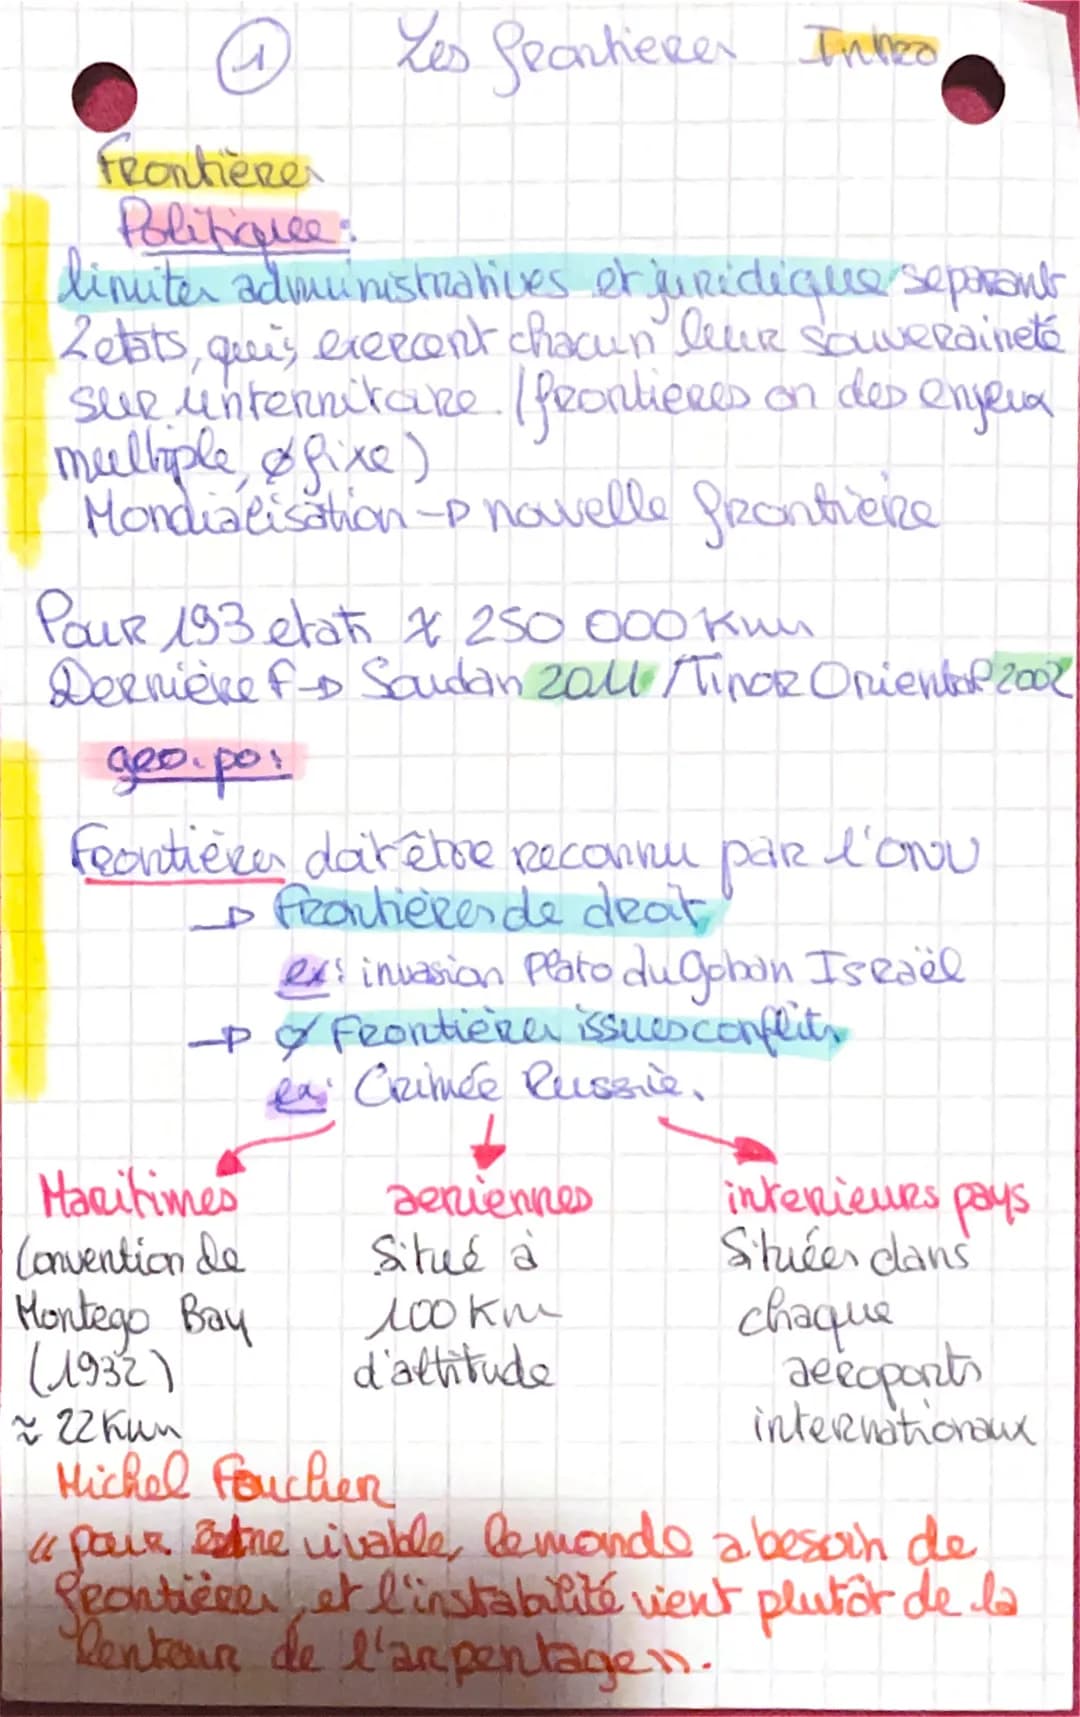 1 Les frontieres Intro
Frontières
Politiques :
limites administratives et juridiques separant
2 etats, qui exercent chacun leur souveraineté
sur un territoire. (frontieres on des enjeux
multiple, ∅ fixe)
Mondialisation → nouvelle frontière
Pour 193 etats ≈ 250 000 Km
Dernière f → Soudan 2011 / Timor Oriental 2002
geo. po :
Frontières doit être reconnu par l'ONU
→ frontières de droit
ex : invasion Plato du Golan Israël
→ ∅ Frontières issues conflits
ex : Crimée Russie.
Maritimes
Convention de
Montego Bay
(1932)
≈ 22 Km
aeriennes
Situé à
100 Km
d'altitude
interieurs pays
Situées dans
chaque
aeroports
internationaux
Michel Foucher
« pour être vivable, le monde a besoin de
frontières, et l'instabilité vient plutôt de la
lenteur de l'arpentage ».